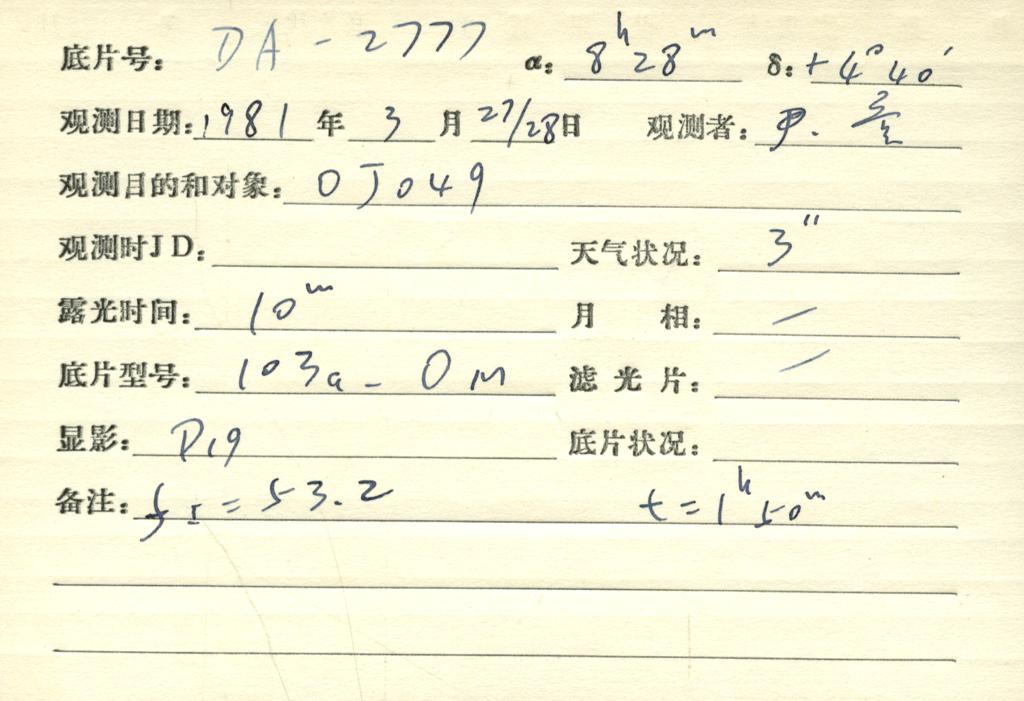 底片号: DA-2777 α: 8h28m δ: +4°40′
观测日期: 1981 年 3 月 27/28日 观测者: 尹.
观测目的和对象: OJ049
观测时JD: 天气状况: 3″
露光时间: 10m 月 相: —
底片型号: 103a-O M 滤光片: —
显影: D19 底片状况:
备注: = 53.2 t=1h50m